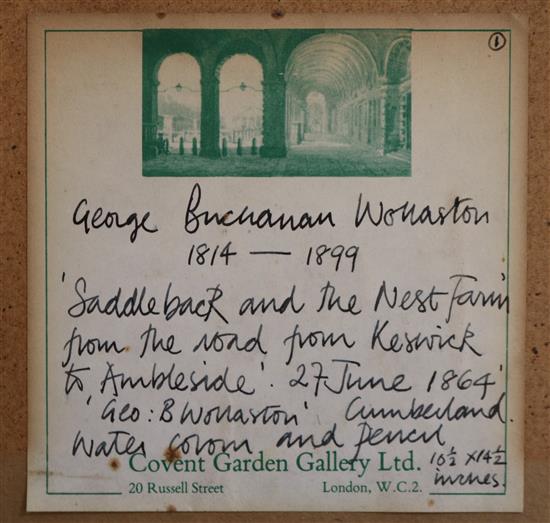 1
George Buchanan Wollaston
1814 — 1899
'Saddleback and the Nest Farm'
from the road from Keswick
to Ambleside'. 27 June 1864'
'Geo: B Wollaston' Cumberland.
Water colour and pencil
10½ x 14½
inches.
Covent Garden Gallery Ltd.
20 Russell Street London, W.C.2.